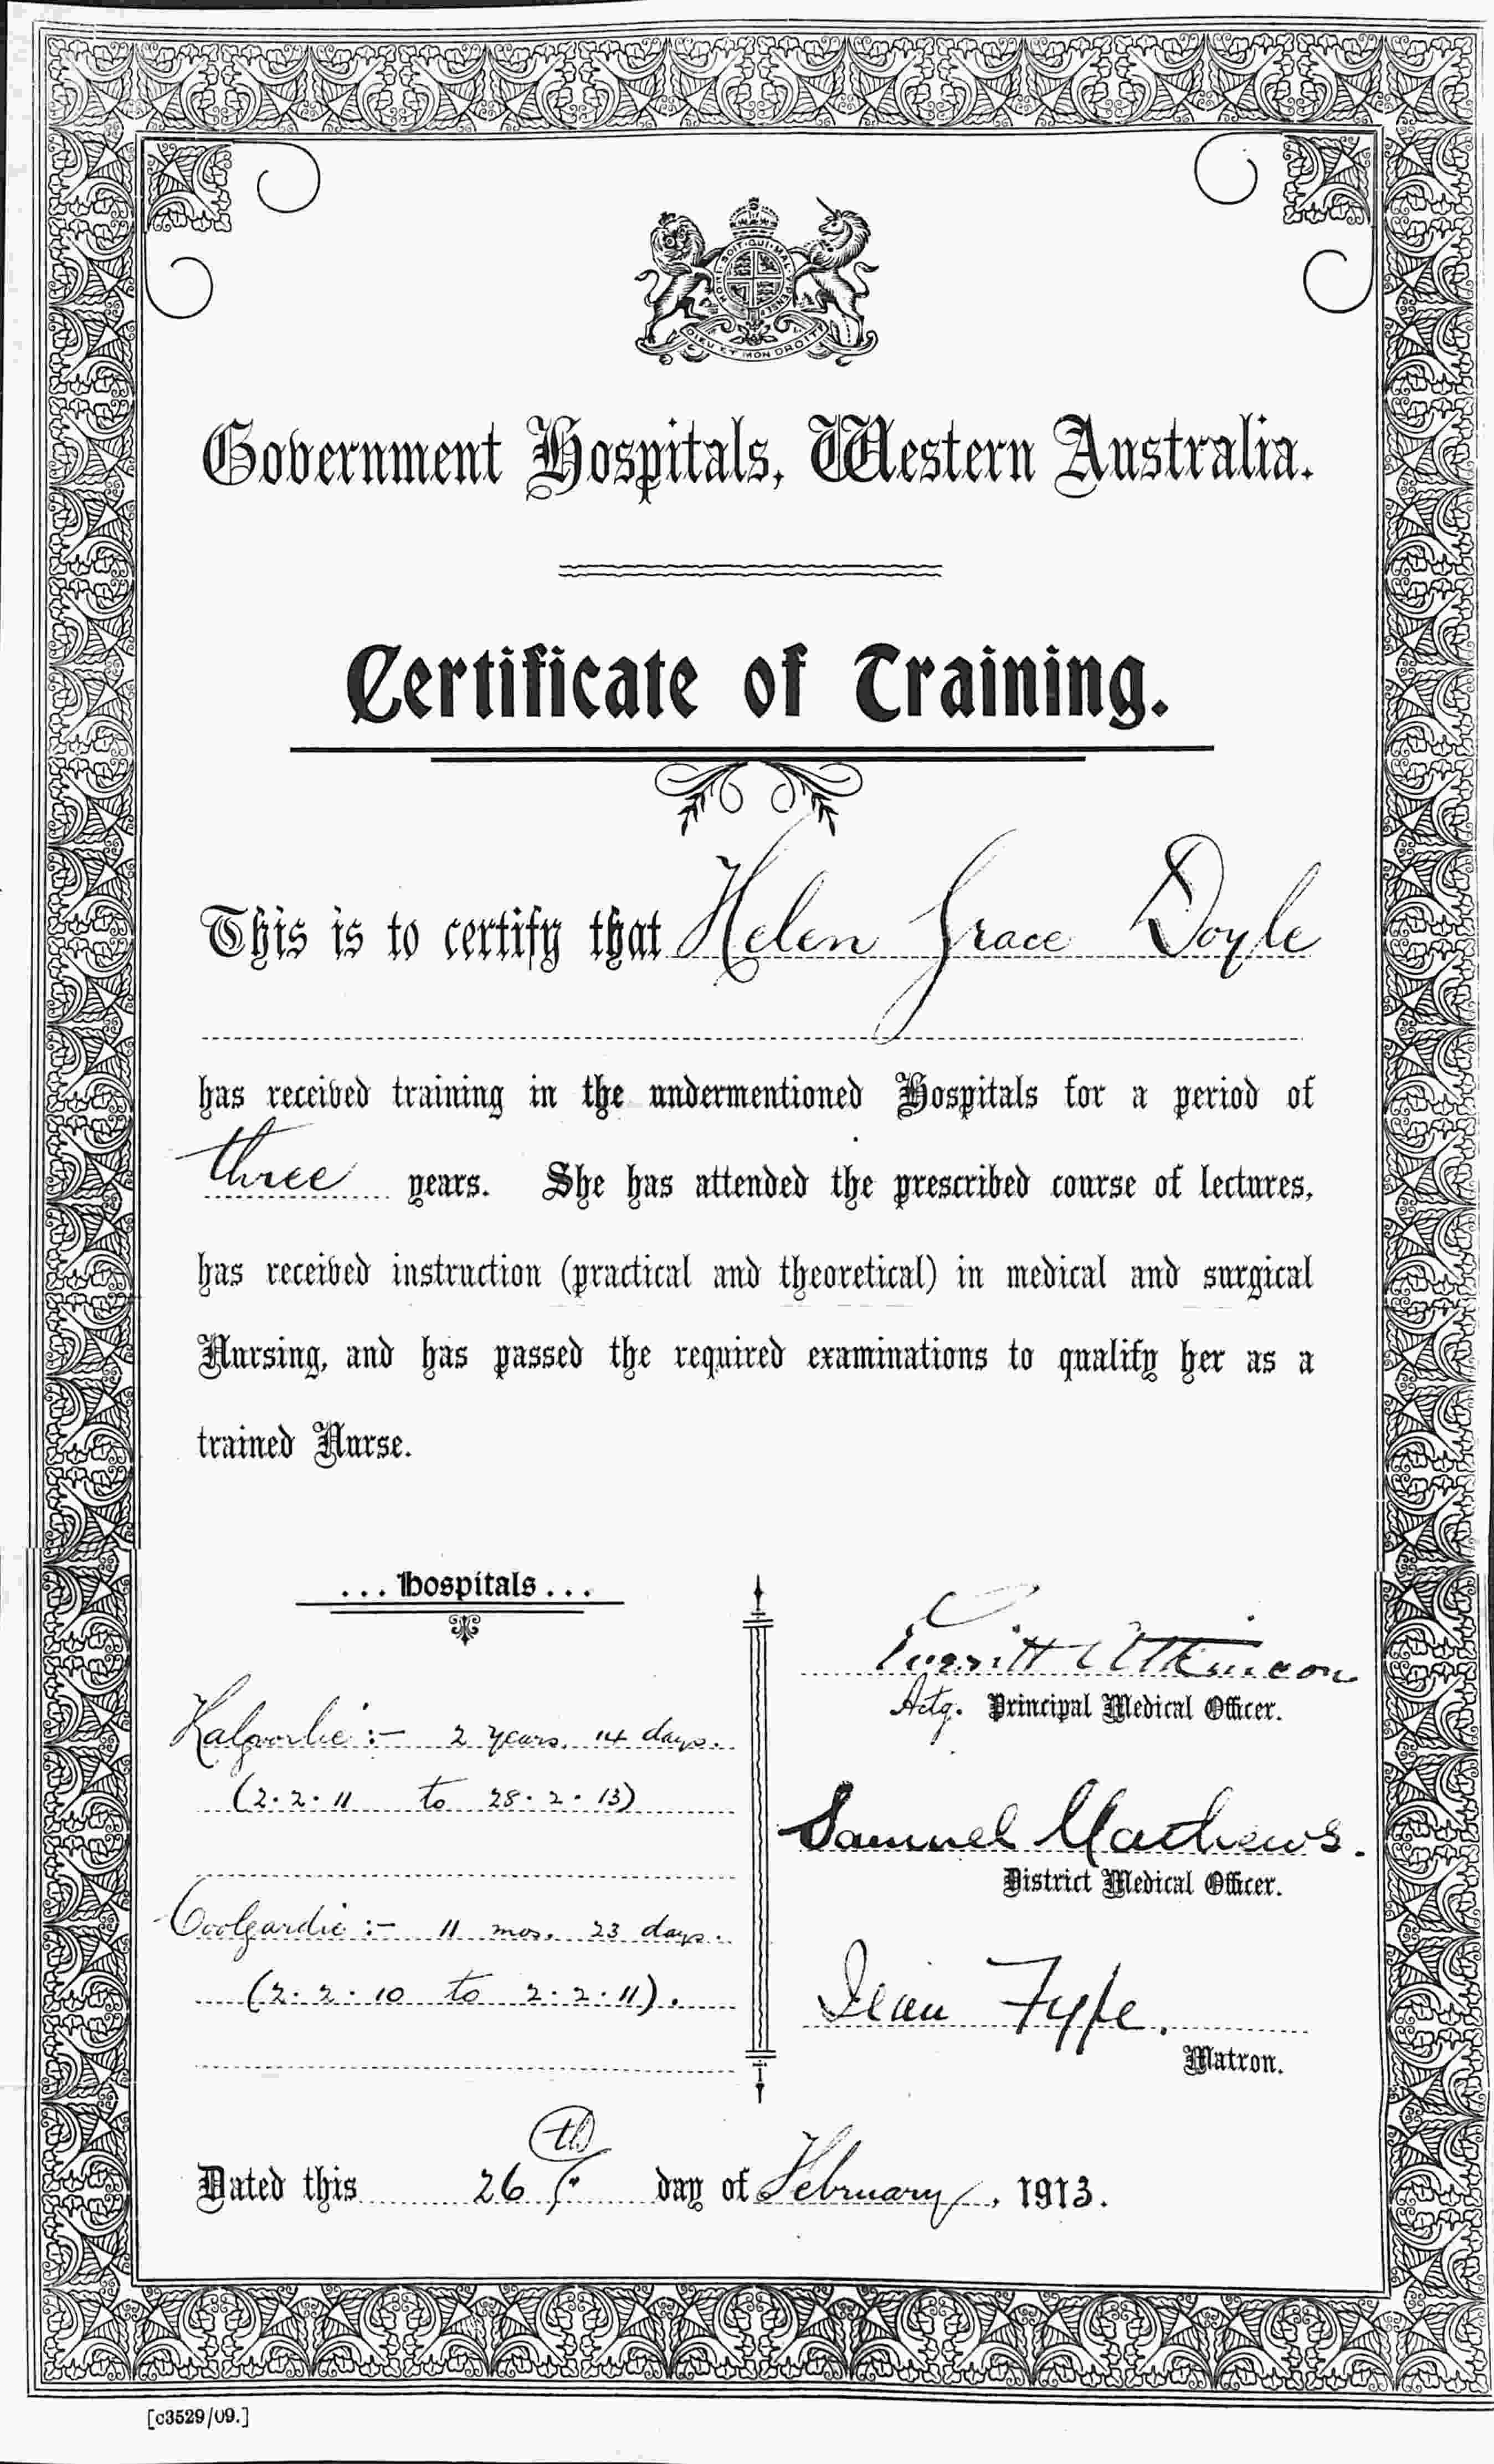 HONI·SOIT·QUI·MAL·Y·PENSE
DIEU ET MON DROIT
Government Hospitals, Western Australia.
Certificate of Training.
This is to certify that Helen Grace Doyle
has received training in the undermentioned Hospitals for a period of
three years. She has attended the prescribed course of lectures,
has received instruction (practical and theoretical) in medical and surgical
Nursing, and has passed the required examinations to qualify her as a
trained Nurse.
... Hospitals ...
Kalgoorlie :- 2 years, 14 days.
(2.2.11 to 28.2.13)
Coolgardie :- 11 mos. 23 days.
(2.2.10 to 2.2.11).
Everitt Atkinson
Actg. Principal Medical Officer.
Samuel Mathews.
District Medical Officer.
Fyffe.
Matron.
Dated this 26th day of February, 1913.
[c3529/09.]